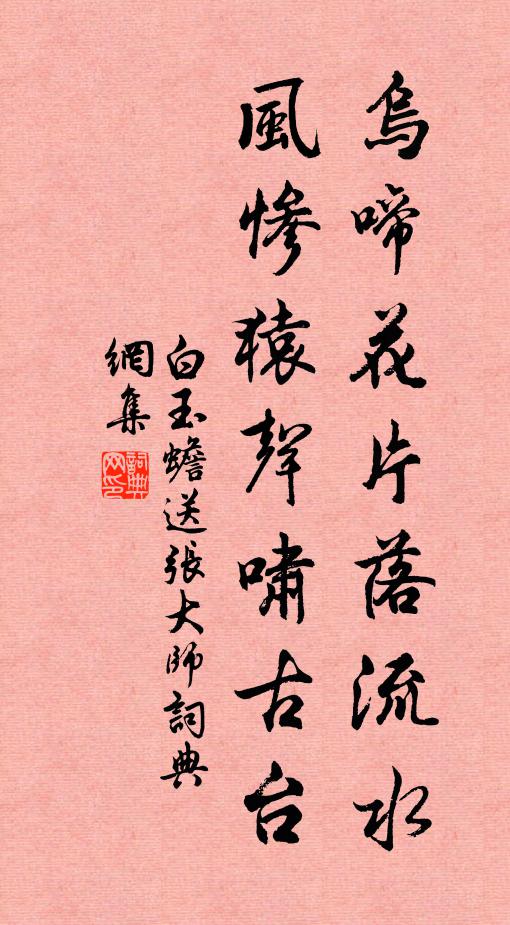 烏啼花片落流水
風慘猿聲嘯古台
白玉蟾送張大師詞典
網集
詞典網印